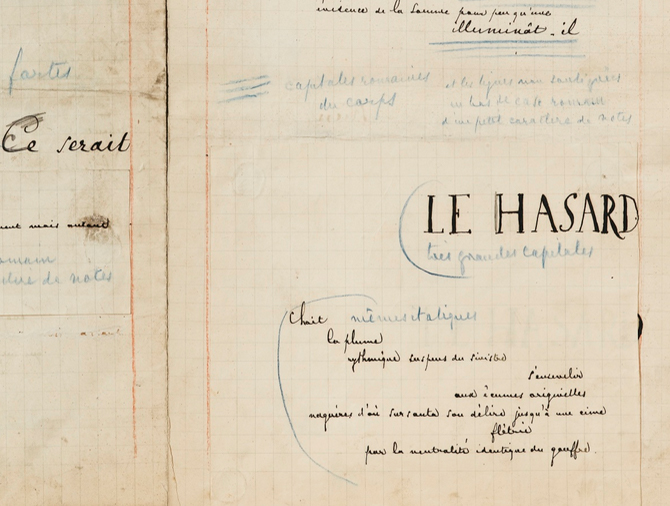 fortes
Ce serait
mais autant
romain
de notes
évidence de la somme pour peu qu'une
illuminât. il
capitales romaines
du corps
et les lignes non soulignées
en bas de casse romain
d'un petit caractère de notes
LE HASARD
très grandes capitales
Choit mêmes italiques
la plume
rythmique suspens du sinistre
s'ensevelir
aux écumes originelles
naguères d'où sursauta son délire jusqu'à une cime
flétrie
par la neutralité identique du gouffre.